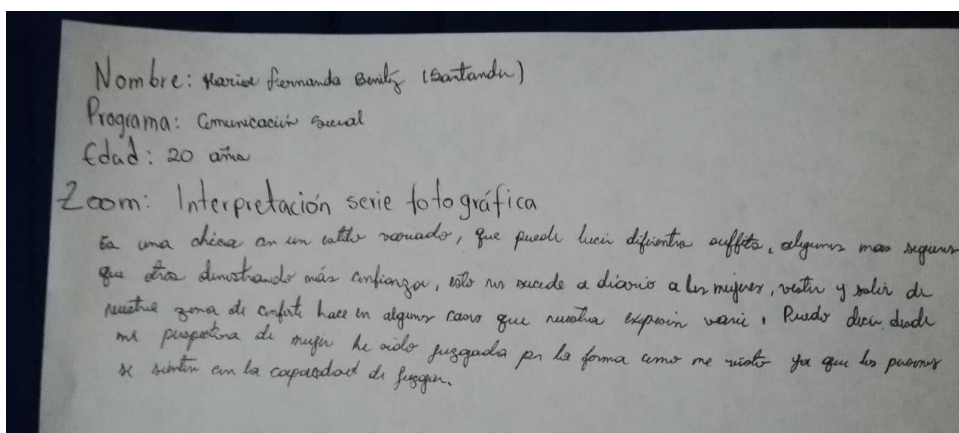 Nombre: Maria fernanda Benitz (Santander)
Programa: Comunicación Social
Edad: 20 años
Zoom: Interpretación serie fotográfica
Es una chica con un estilo variado, que puede lucir diferentes outfits, algunos mas seguros
que otros demostrando más confianza, esto nos sucede a diario a las mujeres, vestir y salir de
nuestra zona de conforte hace en algunos casos que nuestra expresión varie. Puedo decir, desde
mi perspectiva de mujer he sido juzgada por la forma como me visto ya que las personas
se sienten con la capacidad de juzgar.